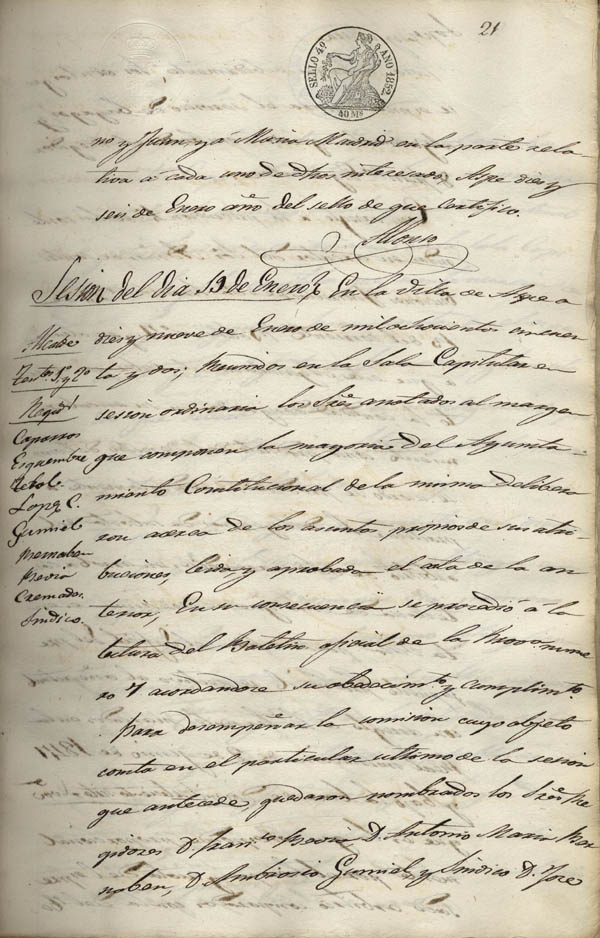 21
SELLO 4º AÑO 1852
40 Ms
no y Juan, y á Maria Madrid en la parte rela
tiva á cada uno de dhos interesados, Aspe diez y
seis de Enero año del sello de que certifico.
Alonso
Sesion del dia 19 de Enero En la Villa de Aspe a
diez y nueve de Enero de mil ochocientos cincuen
ta y dos; Reunidos en la Sala Capitular en
sesion ordinaria los Sres anotados al margen
que componen la mayoria del Ayunta-
miento Constitucional de la misma delibera
ron acerca de los asuntos propios de sus atri-
buciones, leida y aprobada el acta de la an
terior, En su consecuencia se procedió á la
lectura del Boletin oficial de la Prova nume
ro 7 acordandose su obedecimto y cumplimto.
Para desempeñar la comision cuyo objeto
consta en el particular ultimo de la sesion
que antecede quedaron nombrados los Sres Re
gidores D. Franco Pavia, D. Antonio Maria Ber
naben, D. Ambrosio Gumiel y Sindico D. Jose
Alcalde
Tentes 1º y 2º
Regids
Caparros
Esquembre
Lopez C.
Gumiel
Bernaben
Pavia
Cremades
Sindico.